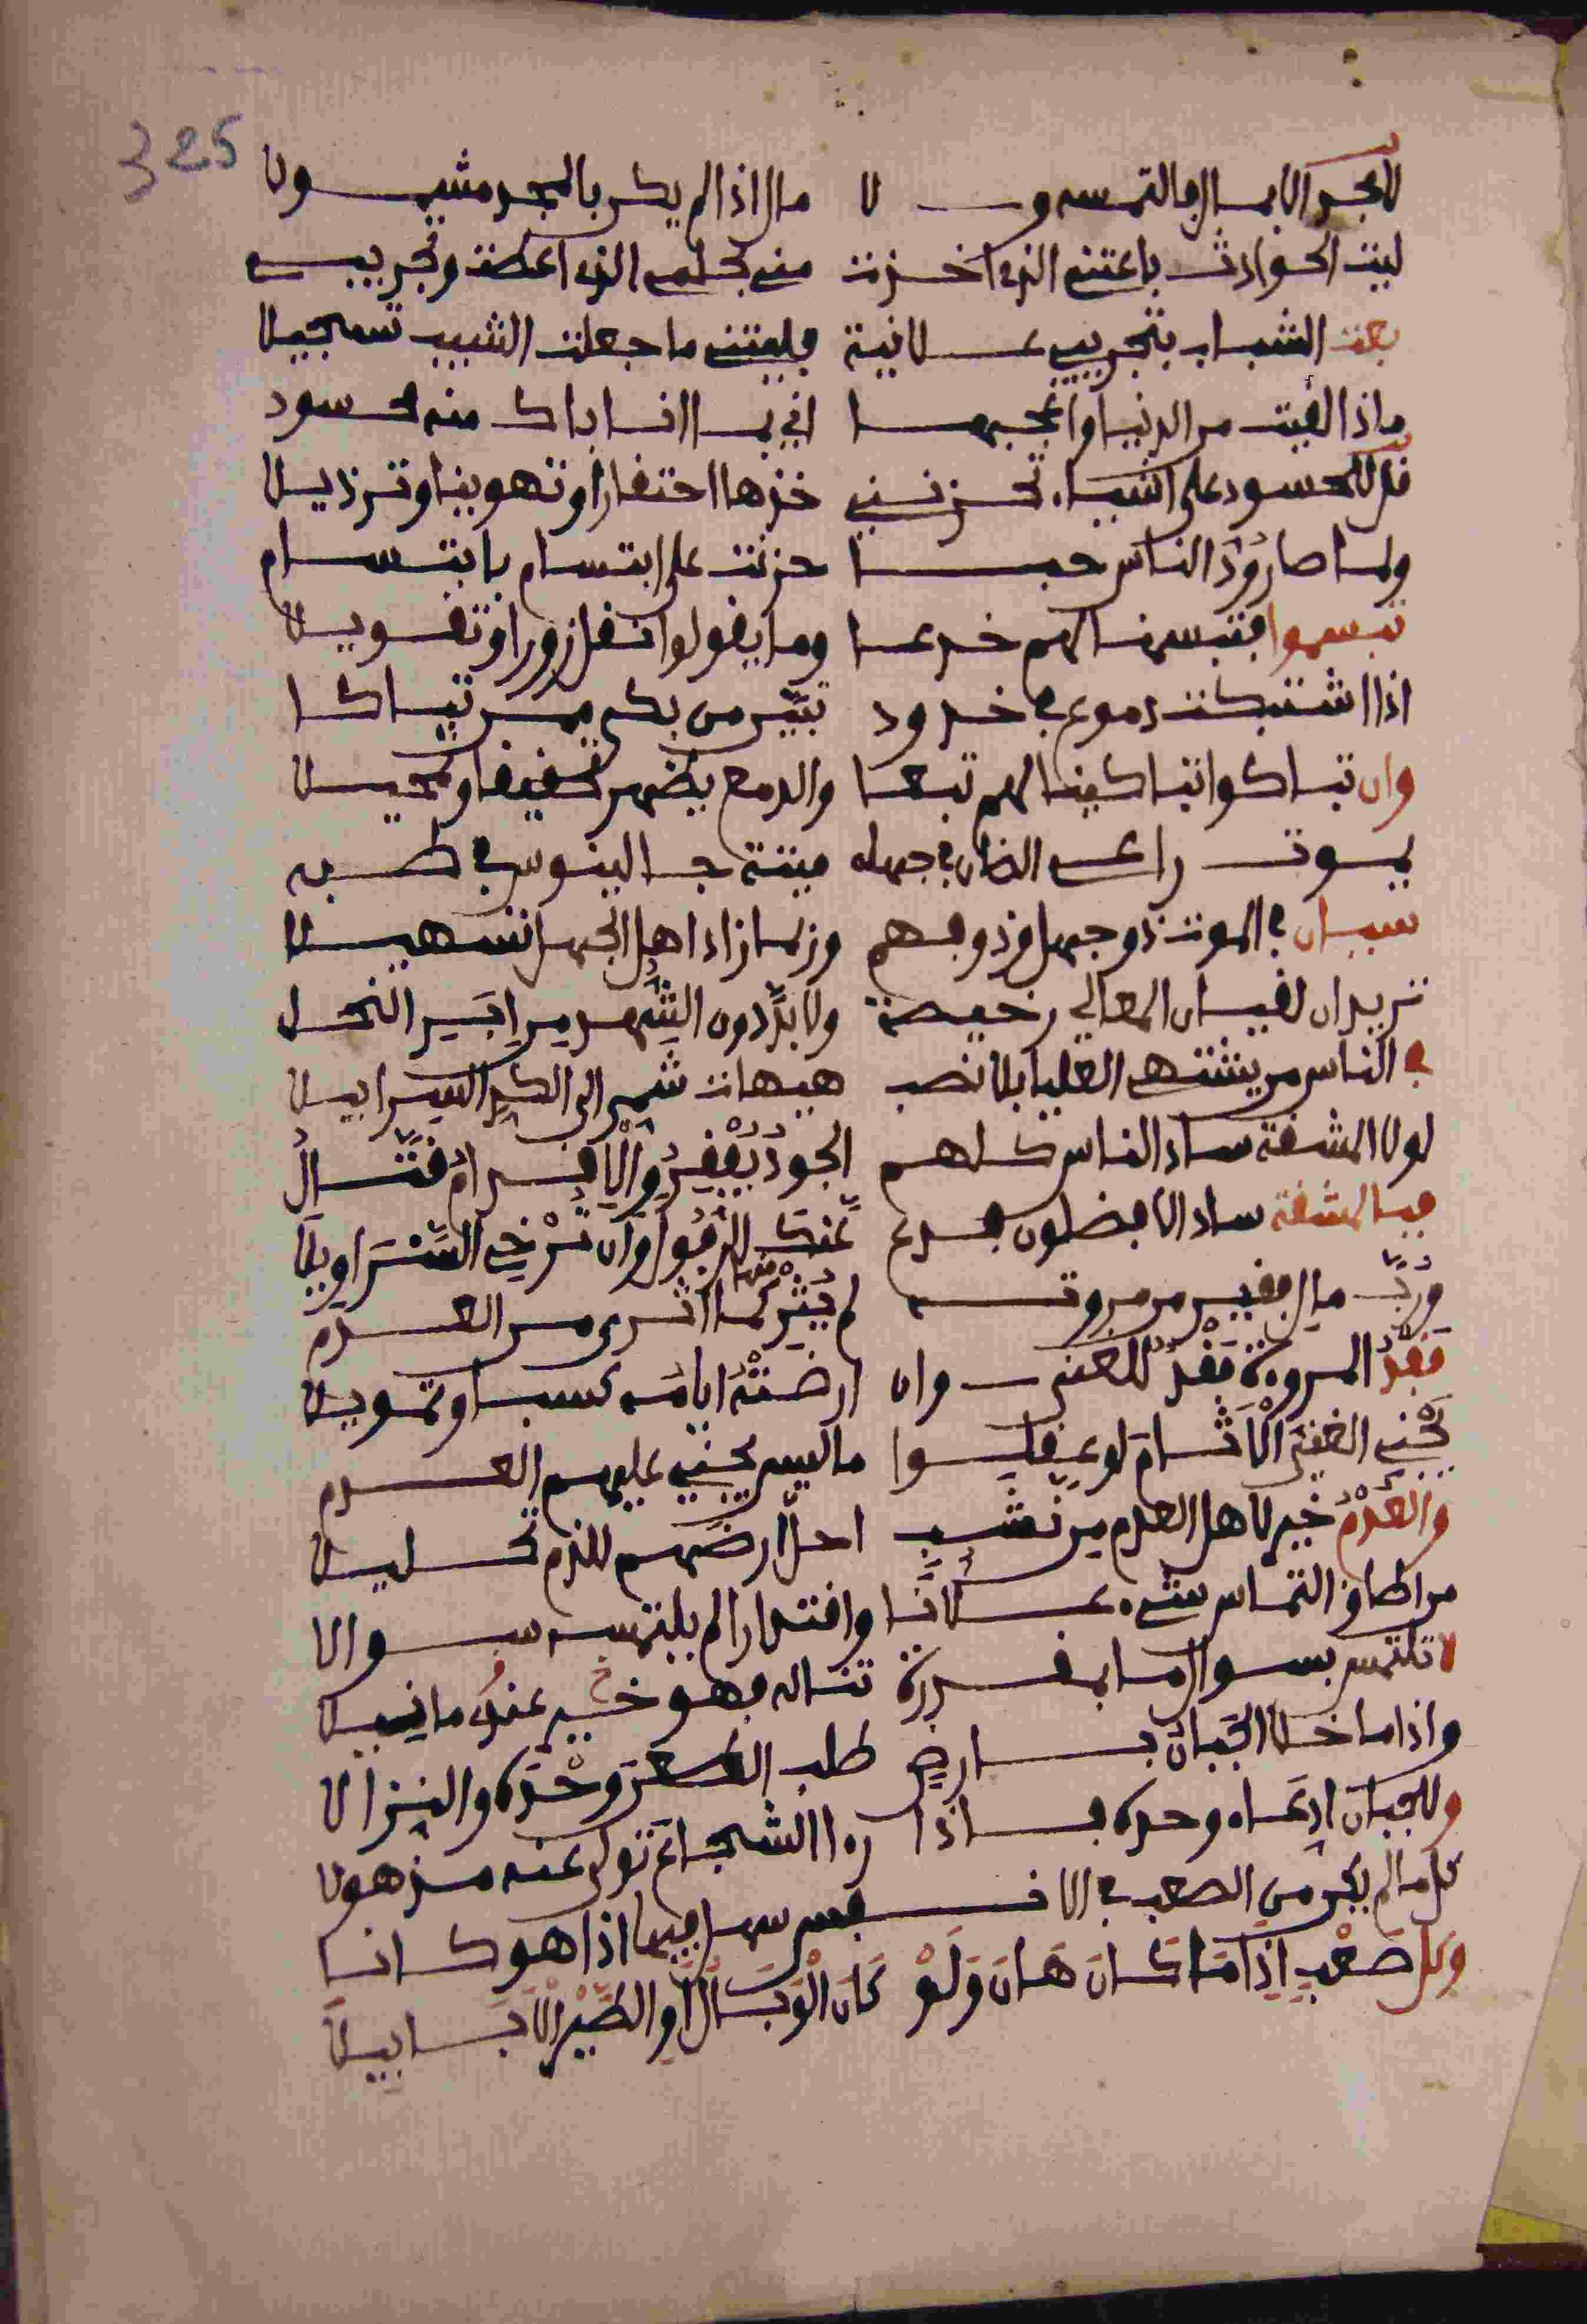 325
للمجد الا بمال فالتمسه ولا مال اذا لم يكن بالمجد مشمولا
ليت الحوادث باعتني الذي اخذت مني بحلمي الذي اعطت وتجريبي
بعت الشباب بتجريبي علانية فليتني ما جعلت الشيب تسجيلا
ماذا لقيت من الدنيا واعجبها اني بما انا باك منه محسود
قل للحسود على اشياء تحزنني خذها احتقارا وتهوينا وترذيلا
ولما صار ود الناس خبا جزيت على ابتسام بابتسام
تبسموا فتبسمنا لهم خدعا وما يقولوا نقل زورا وتقويلا
اذا اشتبكت دموع في خدود تبين من بكى ممن تباكا
وان تباكوا تباكينا لهم تبعا والدمع يظهر تحقيقا وتخييلا
يموت راعي الضان في جهله ميتة جالينوس في طبه
سيان في الموت ذو جهل وذو فهم وربما زاد اهل الجهل تسهيلا
تريدان لقيان المعالي رخيصة ولا بد دون الشهد من ابر النحل
في الناس من يشتهي العليا بلا نصب هيهات شمر الى الكد السرابيلا
لولا المشقة ساد الناس كلهم الجود يفقر والاقدام قتال
فبالمشقة ساد الافضلون فدع عنك الرفول وان ترخي السراويلا
ورب مال فقير من مروته لم يثر منها كما اثرى من العدم
فقد المروءة فقد للغنى وان ارضته ايامه كسبا وتمويلا
يجني الغنى للئام لو عقلوا ما ليس يجني عليهم العدم
والعدم خير لاهل العدم من نشب احل ارضهم للذم تحليلا
من اطاق التماس شيء غلابا واقتدارا لم يلتمسه سوالا
لا تلتمس بسوال ما بقدرة تناله فهو خير عند ما نيلا
واذا ما خلا الجبان بارض طلب الطعن وحده والنزالا
وللجبان ادعاء وحده فاذا رءا الشجاع تولى عنه مذهولا
كل ما لم يكن من الصعب في الانفس سهل فيها اذا هو كانا
وكل صعب اذا ما كان هان ولو كان الوبال او الطير الابابيلا